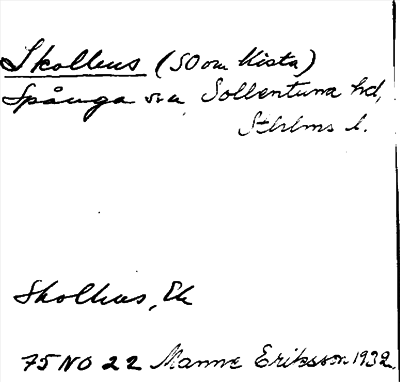 Skolhus (SO om Kista)
Spånga sn Sollentuna hd,
Sthlms l.
Skolhus, Ek
75 NO 22 Manne Eriksson 1932.